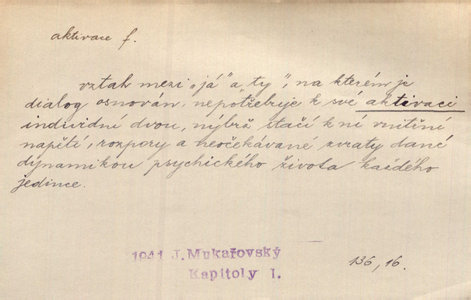 aktivace f.
vztah mezi „já“ a „ty“, na kterém je
dialog osnován, nepotřebuje k své aktivaci
individuí dvou, nýbrž stačí k ní vnitřní
napětí, rozpory a neočekávané zvraty dané
dýnamikou psychického života každého
jedince.
1941 J. Mukařovský
Kapitoly I.
136, 16.